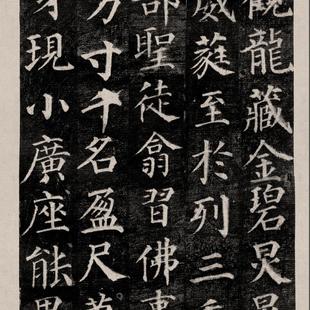 觀龍藏金碧炅晃
葳蕤至於列三
部聖徒翕習佛事
方寸千名盈尺萬
身現小廣座能